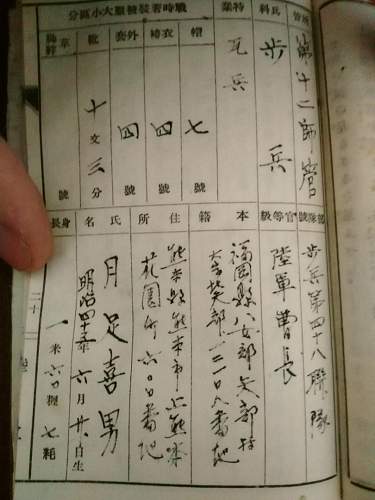 所管 第十二師管
兵科 步兵
特業 瓦兵
戰時著裝被服大小區分
帽 七號
衣袴 四號
外套 四號
靴 十文三分
部隊號 步兵第四十八聯隊
官等級 陸軍曹長
本籍 福岡縣八女郡矢部村
大字矢部一二一〇八番地
住所 熊本縣熊本市上熊本
花園町六〇四番地
氏名 月足喜男
明治四十五年六月廿八日生
身長 一米六〇糎七粍